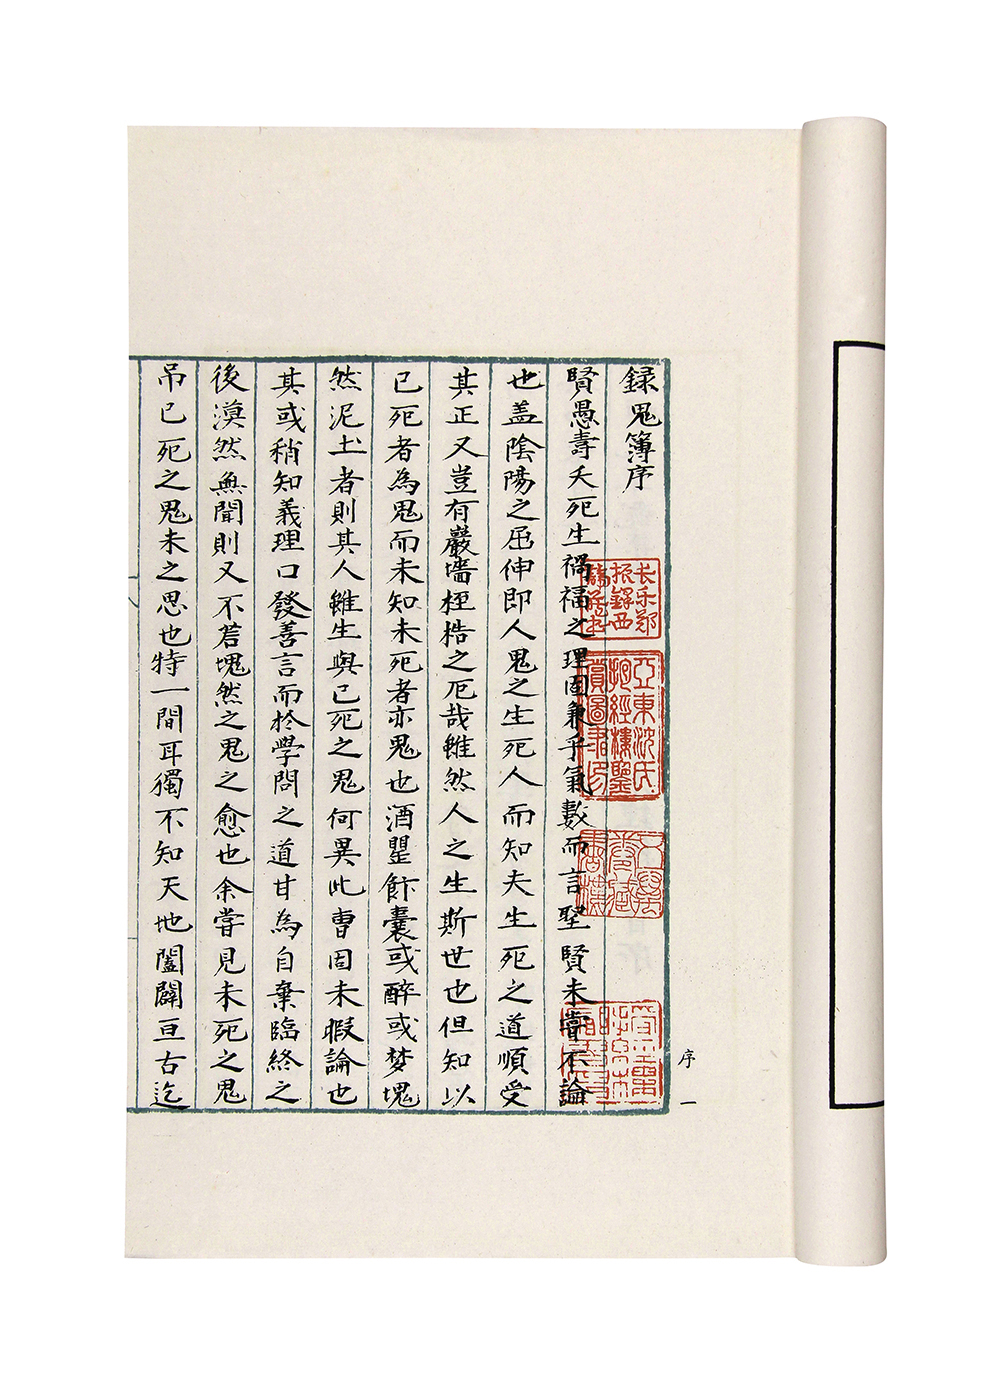 錄鬼簿序
賢愚壽夭死生禍福之理固兼乎氣數而言聖賢未嘗不論
也盖陰陽之屈伸即人鬼之生死人而知夫生死之道順受
其正又豈有巖墻桎梏之厄哉雖然人之生斯世也但知以
已死者為鬼而未知未死者亦鬼也酒罌飰囊或醉或梦塊
然泥土者則其人雖生與已死之鬼何異此曹固未暇論也
其或稍知義理口發善言而於學問之道甘為自棄臨終之
後漠然無聞則又不若塊然之鬼之愈也余嘗見未死之鬼
吊已死之鬼未之思也特一間耳獨不知天地闔闢亘古迄
長乐鄭
振鐸西
諦藏書
亞東沈氏
抱經樓鑒
賞圖書印
序
一